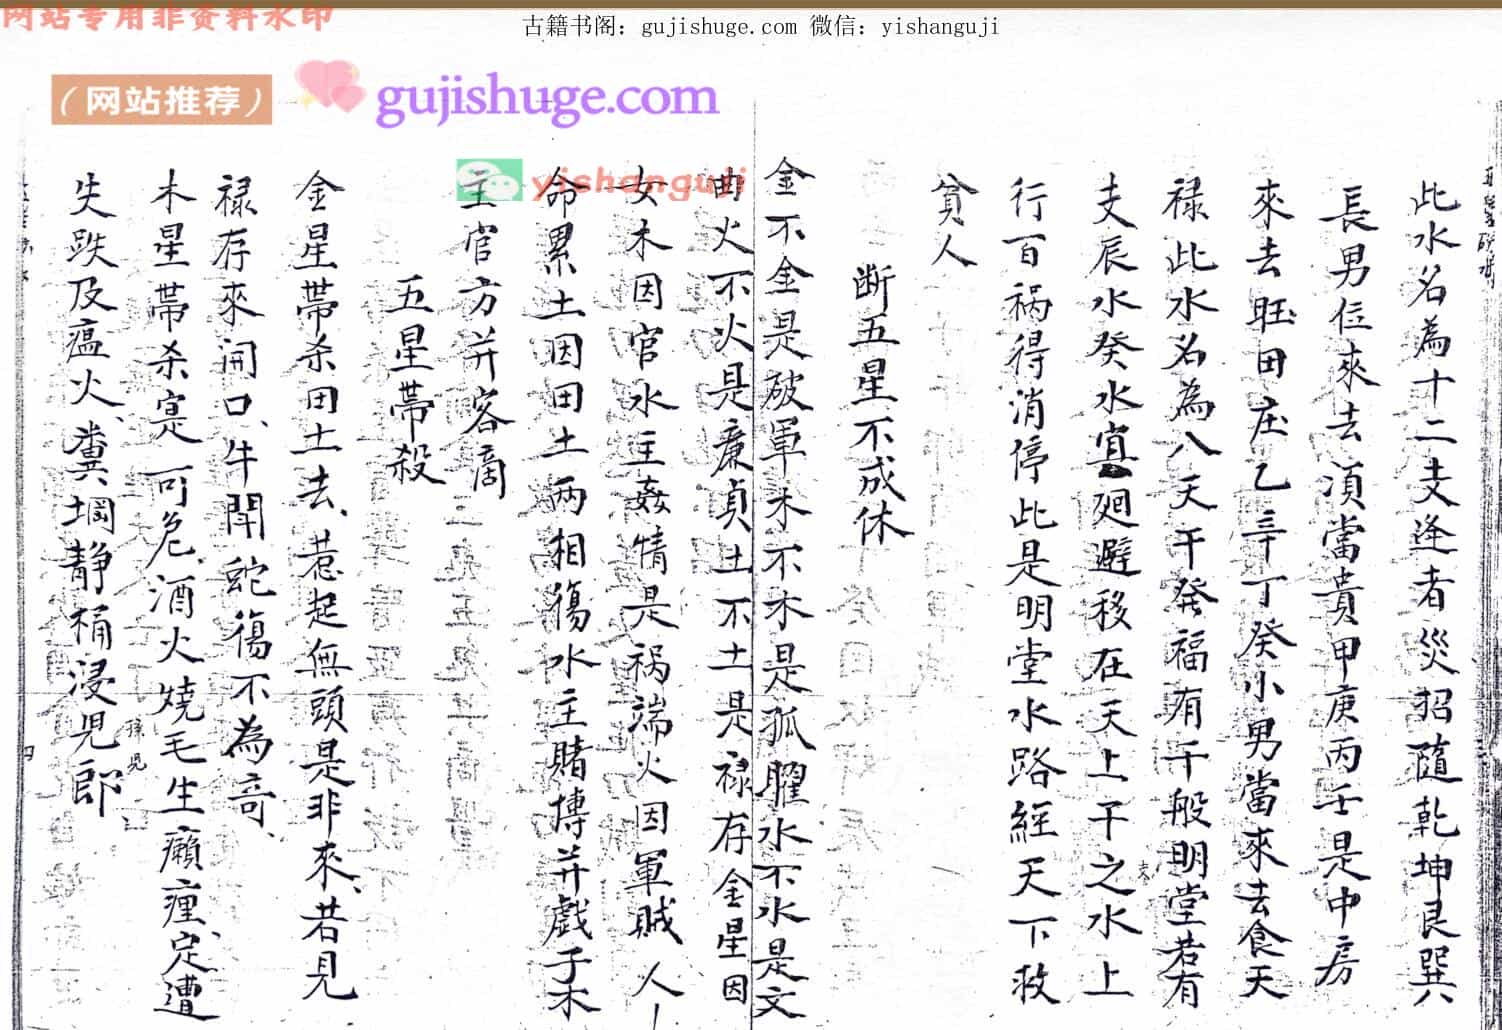 网站专用非资料水印
古籍书阁：gujishuge.com 微信：yishanguji
（网站推荐）
gujishuge.com
yishanguji
此水名為十二支逢者災招隨乾坤艮巽
長男位來去湏當貴甲庚丙壬是中房
來去旺田庄乙辛丁癸小男當來去食天
禄此水名為八天干發福有千般明堂若有
支辰水癸水宜廻避移在天上干之水上
行百祸得消停此是明堂水路經天下救
貧人
断五星不成休
金不金是破軍木不木是孤曜水不水是文
曲火不火是廉貞土不土是禄存金星因
女木因官水主姦情是祸端火因軍賊人
命累土因田土两相傷水主賭博并戲子木
主官方并客商
五星帶殺
金星帶杀田土去惹起無頭是非來若見
禄存來開口牛鬪蛇傷不為竒
木星帶杀寔可危酒火燒毛生癩瘋定遭
失跌及瘟火糞堈静桶浸児郎